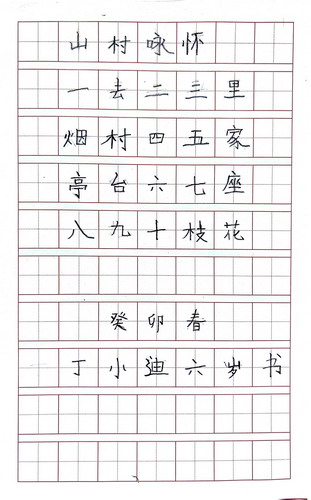 山村咏怀
一去二三里
烟村四五家
亭台六七座
八九十枝花
癸卯春
丁小迪六岁书